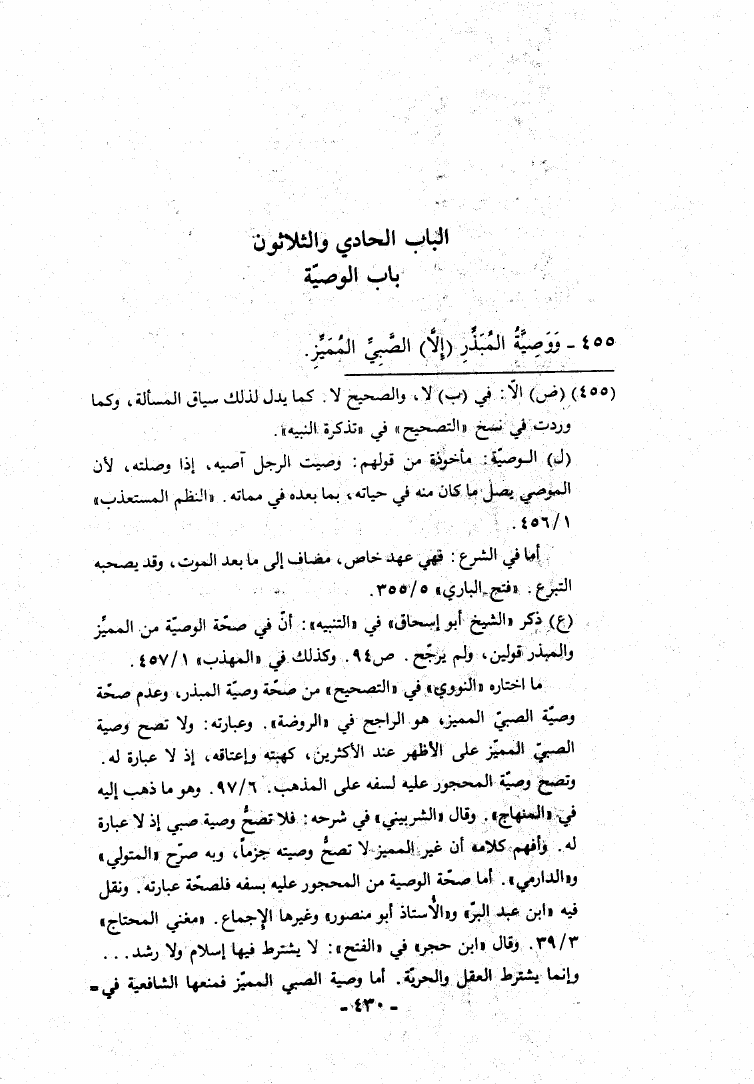 الباب الحادي والثلاثون
باب الوصيّة
٤٥٥ - وَوَصِيَّةُ المُبَذِّرِ (إِلَّا) الصَّبِيِّ المُمَيِّزِ.
(٤٥٥) (ض) الّا: في (ب) لا، والصحيح لا. كما يدل لذلك سياق المسألة، وكما
وردت في نسخ «التصحيح» في «تذكرة النبيه».
(ل) الوصيّة: مأخوذة من قولهم: وصيت الرجل آصيه، إذا وصلته، لأن
الموصي يصل ما كان منه في حياته، بما بعده في مماته. «النظم المستعذب»
٤٥٦/١.
أما في الشرع: فهي عهد خاص، مضاف إلى ما بعد الموت، وقد يصحبه
التبرع. «فتح الباري» ٣٥٥/٥.
(ع) ذكر «الشيخ أبو إسحاق» في «التنبيه»: أنّ في صحّة الوصيّة من المميِّز
والمبذر قولين، ولم يرجّح. ص٩٤. وكذلك في «المهذب» ٤٥٧/١.
ما اختاره «النووي» في «التصحيح» من صحّة وصيّة المبذر، وعدم صحّة
وصيّة الصبيّ المميز، هو الراجح في «الروضة». وعبارته: ولا تصح وصية
الصبيّ المميّز على الأظهر عند الأكثرين، كهبته وإعتاقه، إذ لا عبارة له.
وتصح وصيّة المحجور عليه لسفه على المذهب. ٩٧/٦. وهو ما ذهب إليه
في «المنهاج». وقال «الشربيني» في شرحه: فلا تصحُّ وصية صبي إذ لا عبارة
له. وأفهم كلامه أن غير المميز لا تصحُّ وصيته جزماً، وبه صرّح «المتولي»
و«الدارمي». أما صحّة الوصية من المحجور عليه بسفه فلصحّة عبارته. ونقل
فيه «ابن عبد البرّ» و«الأُستاذ أبو منصور» وغيرها الإجماع. «مغني المحتاج»
٣٩/٣. وقال «ابن حجر» في «الفتح»: لا يشترط فيها إسلام ولا رشد...
وإنما يشترط العقل والحريّة. أما وصية الصبي المميّز فمنعها الشافعية في =
- ٤٣٠ -